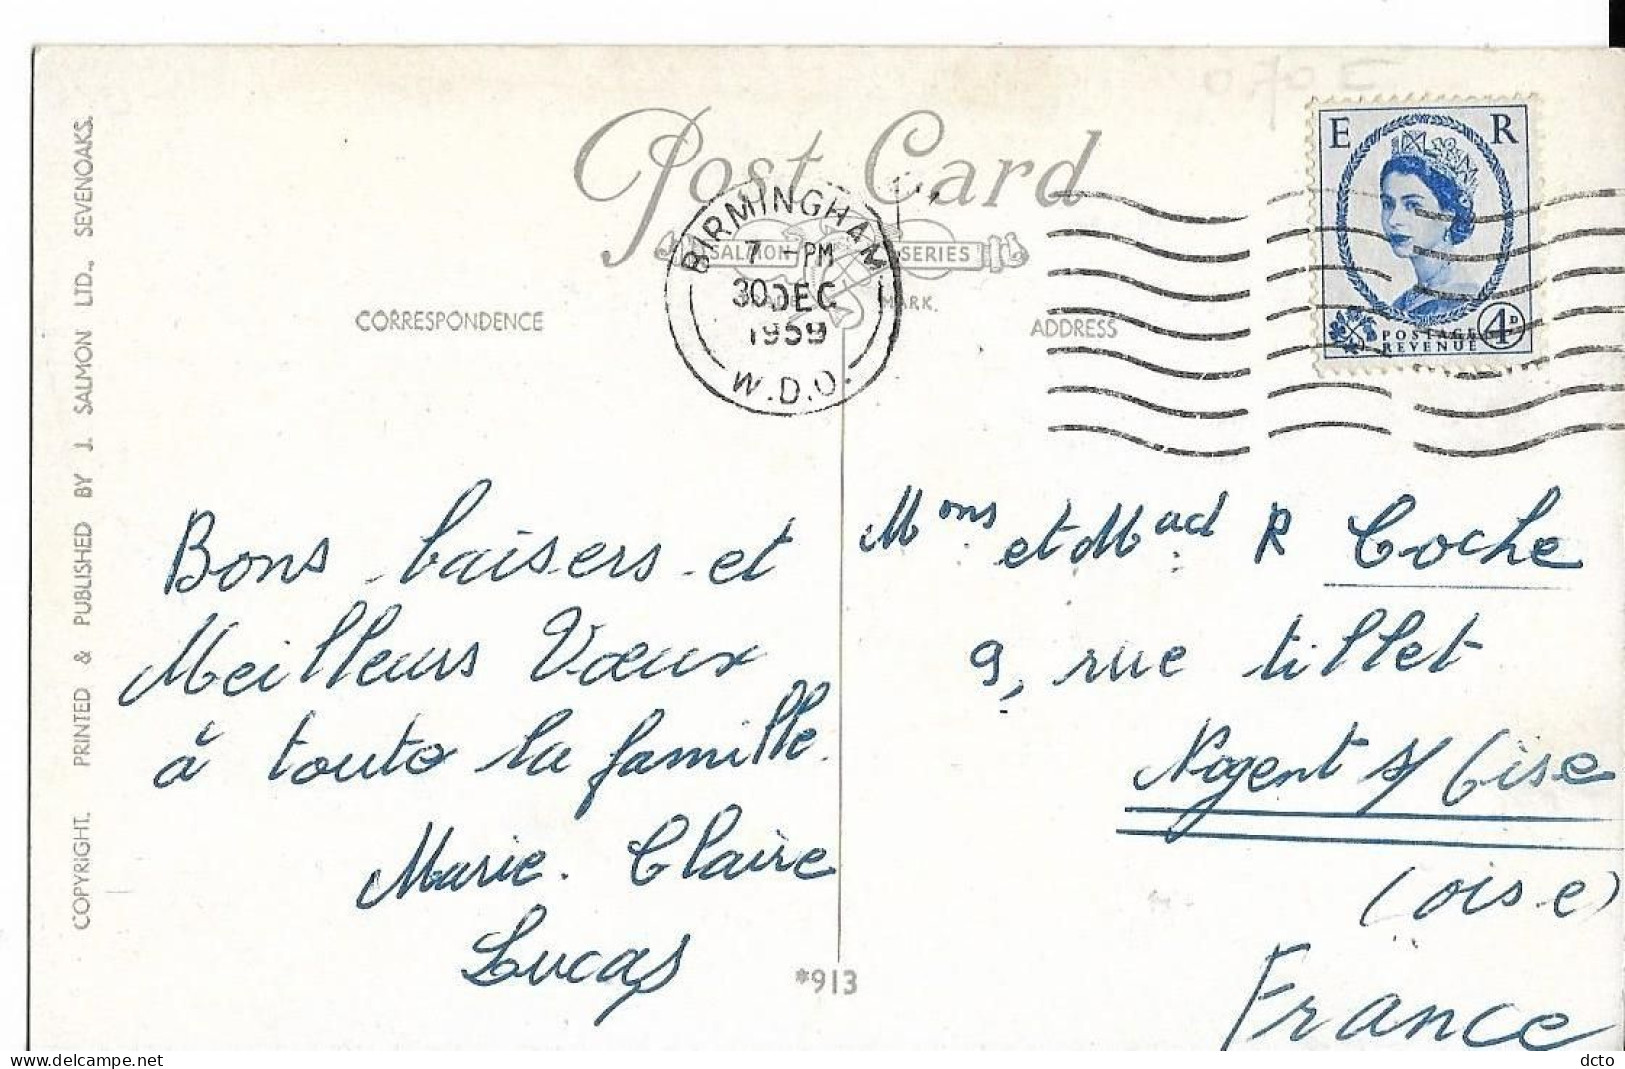 COPYRIGHT. PRINTED & PUBLISHED BY J. SALMON LTD., SEVENOAKS.
Post Card
SALMON SERIES
MARK.
CORRESPONDENCE
ADDRESS
BIRMINGHAM
7 - PM
30 DEC
1959
W.D.O.
E R
POSTAGE
REVENUE
4D
Bons baisers et
Meilleurs Vœux
à toute la famille.
Marie. Claire
Lucas
*913
Mons et Mad R Coche
9, rue tillet
Nogent s/ Oise
(oise)
France
delcampe.net
dcto